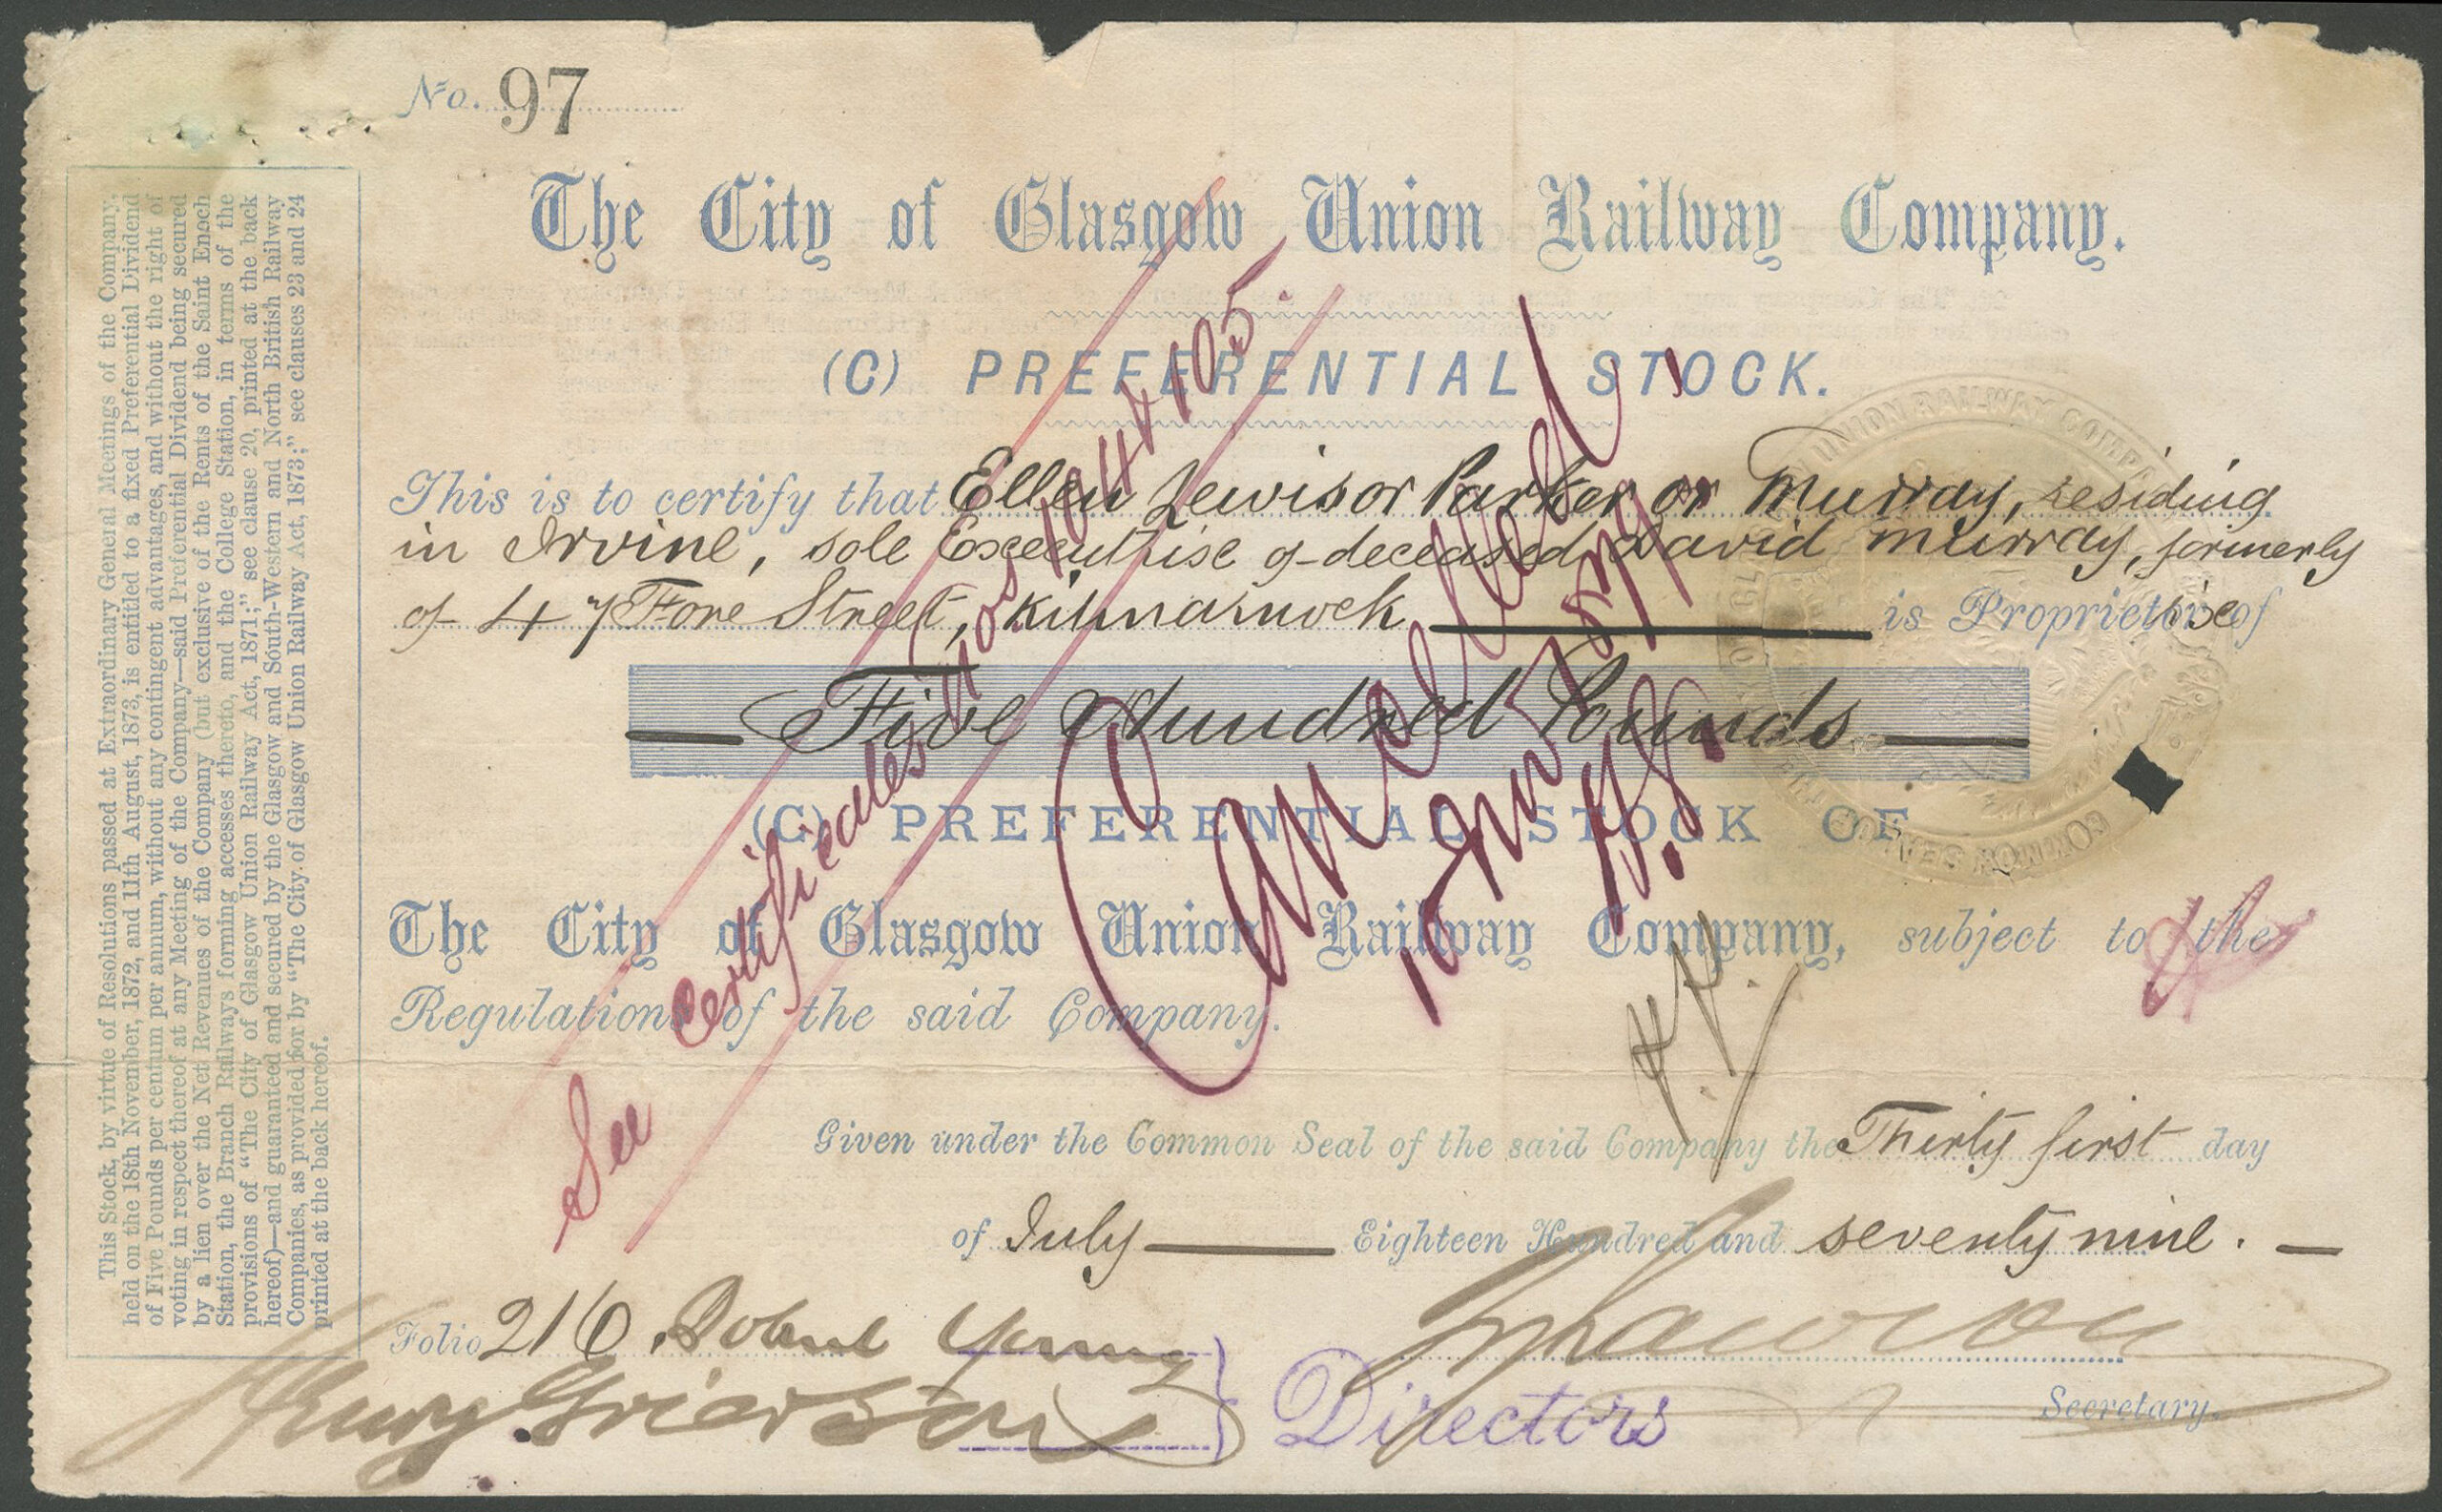 No. 97
The City of Glasgow Union Railway Company.
(C) PREFERENTIAL STOCK.
This is to certify that Ellen Lewis or Parker or Murray, residing
in Irvine, sole Executrix of deceased David Murray, formerly
of 47 Fore Street, Kilmarnock is Proprietrix of
Five Hundred Pounds
(C) PREFERENTIAL STOCK OF
The City of Glasgow Union Railway Company, subject to the
Regulations of the said Company.
Given under the Common Seal of the said Company the Thirty first day
of July Eighteen Hundred and seventy nine.
Folio 216. Robert Young
Henry Grierson
Directors
Secretary.
See Certificates Nos 104 & 105.
Cancelled
This Stock, by virtue of Resolutions passed at Extraordinary General Meetings of the Company,
held on the 18th November, 1872, and 11th August, 1873, is entitled to a fixed Preferential Dividend
of Five Pounds per centum per annum, without any contingent advantages, and without the right of
voting in respect thereof at any Meeting of the Company—said Preferential Dividend being secured
by a lien over the Net Revenues of the Company (but exclusive of the Rents of the Saint Enoch
Station, the Branch Railways forming accesses thereto, and the College Station, in terms of the
provisions of "The City of Glasgow Union Railway Act, 1871;" see clause 20, printed at the back
hereof)—and guaranteed and secured by the Glasgow and South-Western and North British Railway
Companies, as provided for by "The City of Glasgow Union Railway Act, 1873;" see clauses 23 and 24
printed at the back hereof.